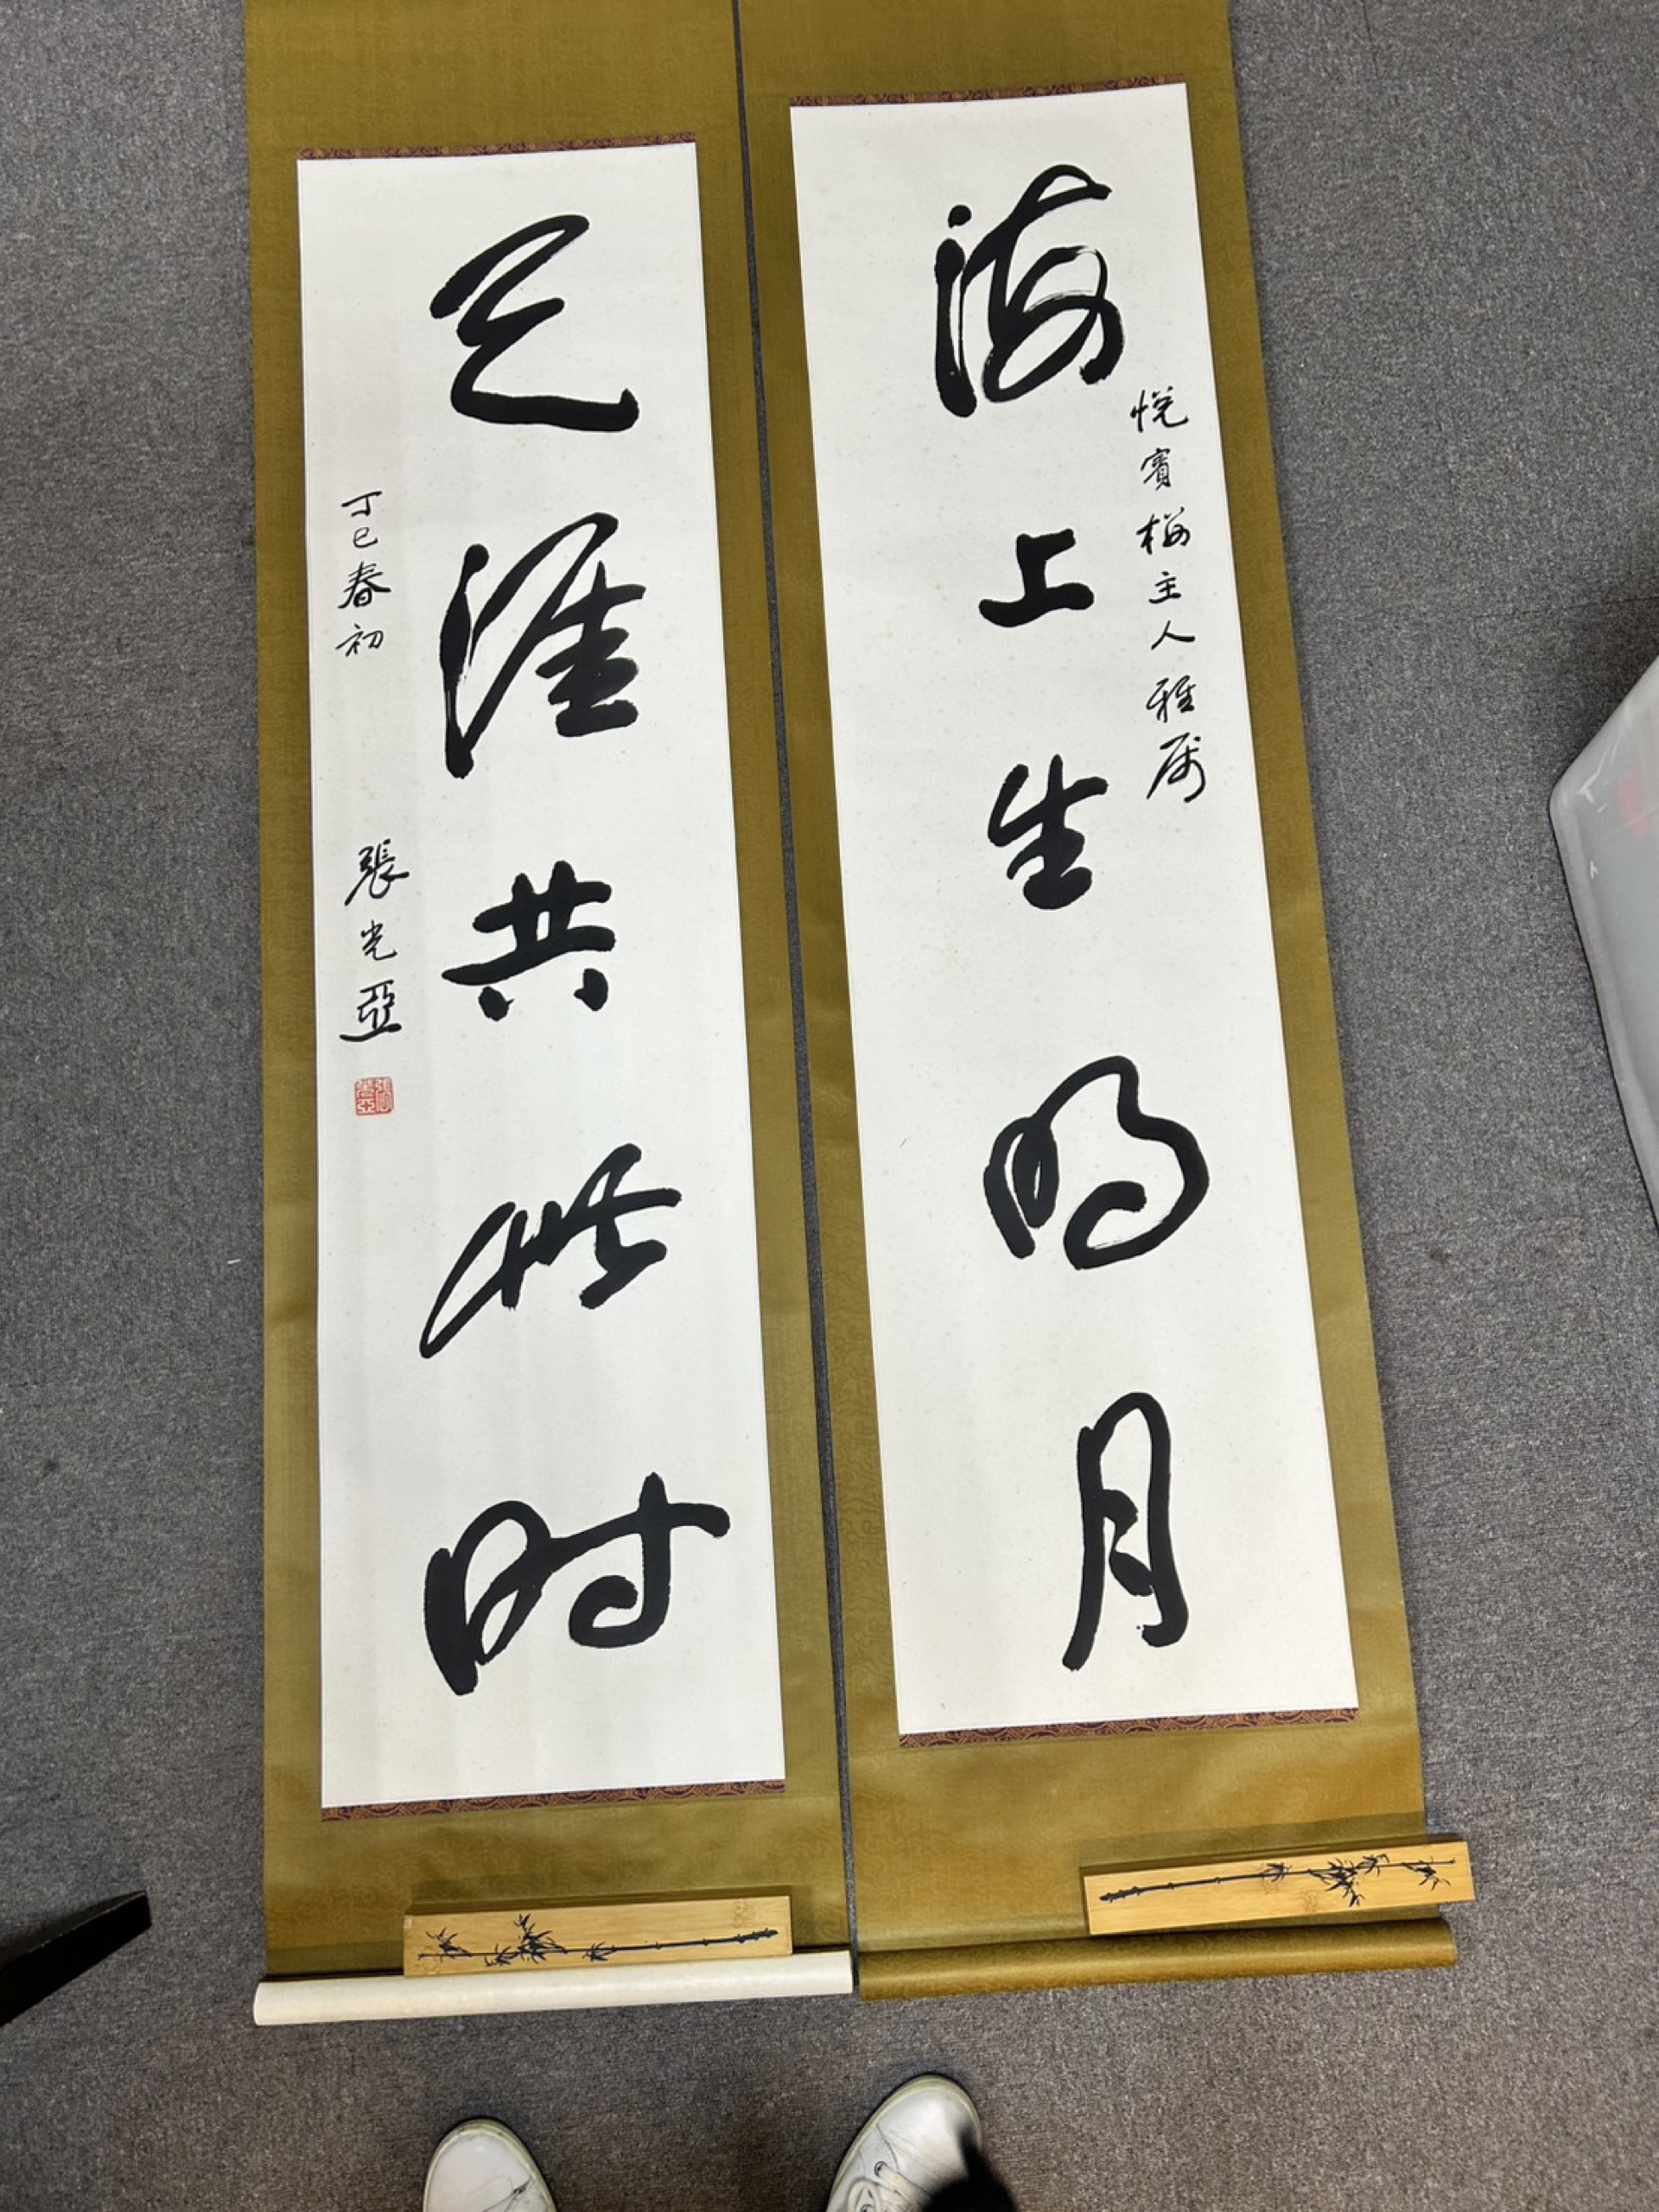 悦賓樓主人雅属
海上生明月
天涯共此时
丁巳春初
張光亞